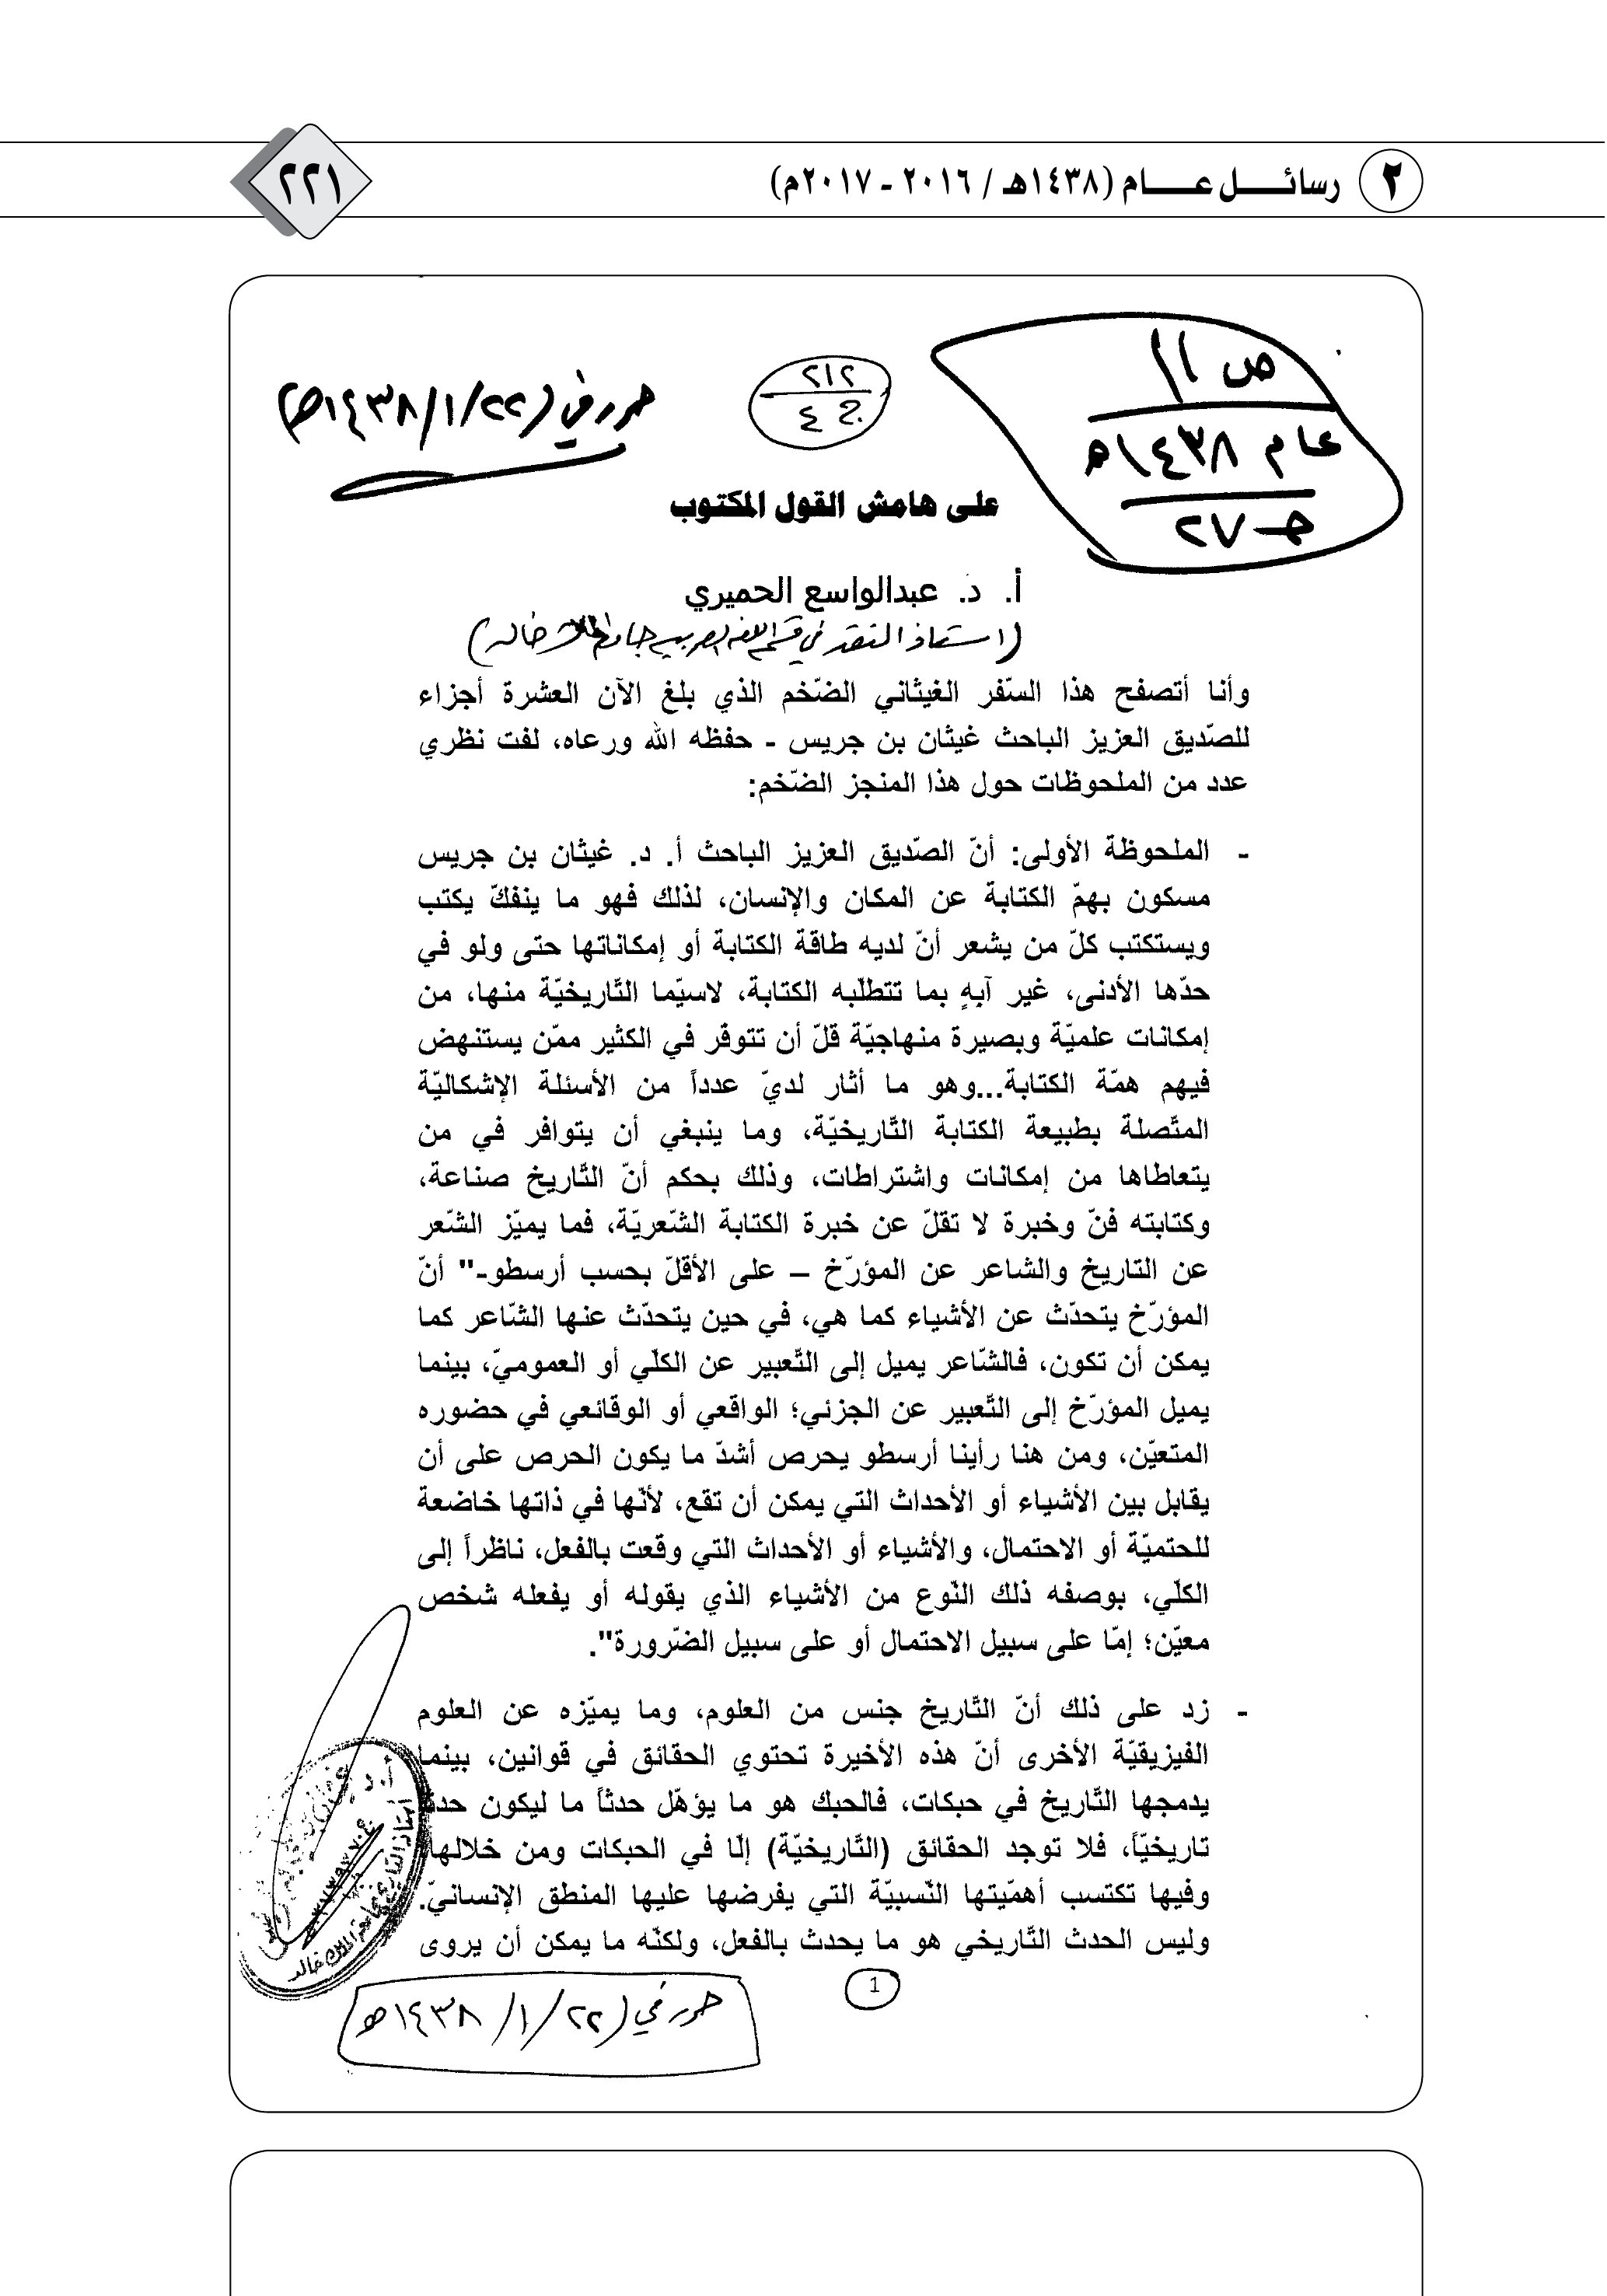 ٢ رسائل عام (١٤٣٨هـ / ٢٠١٦ - ٢٠١٧م)
٢٢١
ص ١١
عام ١٤٣٨هـ
حـ ٢٧
٢١٢
ج ٤
حرر في (٢٢/١/١٤٣٨هـ)
على هامش القول المكتوب
أ. د. عبدالواسع الحميري
(استاذ النقد في قسم اللغه العربيه جامعة الملك خالد)
وأنا أتصفح هذا السّفر الغيثاني الضّخم الذي بلغ الآن العشرة أجزاء
للصّديق العزيز الباحث غيثان بن جريس - حفظه الله ورعاه، لفت نظري
عدد من الملحوظات حول هذا المنجز الضّخم:
- الملحوظة الأولى: أنّ الصّديق العزيز الباحث أ. د. غيثان بن جريس
مسكون بهمّ الكتابة عن المكان والإنسان، لذلك فهو ما ينفكّ يكتب
ويستكتب كلّ من يشعر أنّ لديه طاقة الكتابة أو إمكاناتها حتى ولو في
حدّها الأدنى، غير آبهٍ بما تتطلّبه الكتابة، لاسيّما التّاريخيّة منها، من
إمكانات علميّة وبصيرة منهاجيّة قلّ أن تتوفر في الكثير ممّن يستنهض
فيهم همّة الكتابة...وهو ما أثار لديّ عدداً من الأسئلة الإشكاليّة
المتّصلة بطبيعة الكتابة التّاريخيّة، وما ينبغي أن يتوافر في من
يتعاطاها من إمكانات واشتراطات، وذلك بحكم أنّ التّاريخ صناعة،
وكتابته فنّ وخبرة لا تقلّ عن خبرة الكتابة الشّعريّة، فما يميّز الشّعر
عن التاريخ والشاعر عن المؤرّخ – على الأقلّ بحسب أرسطو-" أنّ
المؤرّخ يتحدّث عن الأشياء كما هي، في حين يتحدّث عنها الشّاعر كما
يمكن أن تكون، فالشّاعر يميل إلى التّعبير عن الكلّي أو العموميّ، بينما
يميل المؤرّخ إلى التّعبير عن الجزئي؛ الواقعي أو الوقائعي في حضوره
المتعيّن، ومن هنا رأينا أرسطو يحرص أشدّ ما يكون الحرص على أن
يقابل بين الأشياء أو الأحداث التي يمكن أن تقع، لأنّها في ذاتها خاضعة
للحتميّة أو الاحتمال، والأشياء أو الأحداث التي وقعت بالفعل، ناظراً إلى
الكلّي، بوصفه ذلك النّوع من الأشياء الذي يقوله أو يفعله شخص
معيّن؛ إمّا على سبيل الاحتمال أو على سبيل الضّرورة".
- زد على ذلك أنّ التّاريخ جنس من العلوم، وما يميّزه عن العلوم
الفيزيقيّة الأخرى أنّ هذه الأخيرة تحتوي الحقائق في قوانين، بينما
يدمجها التّاريخ في حبكات، فالحبك هو ما يؤهّل حدثاً ما ليكون حدثاً
تاريخيّاً، فلا توجد الحقائق (التّاريخيّة) إلّا في الحبكات ومن خلالها،
وفيها تكتسب أهمّيتها النّسبيّة التي يفرضها عليها المنطق الإنسانيّ.
وليس الحدث التّاريخي هو ما يحدث بالفعل، ولكنّه ما يمكن أن يروى
1
حرر في (٢٢/١/١٤٣٨هـ